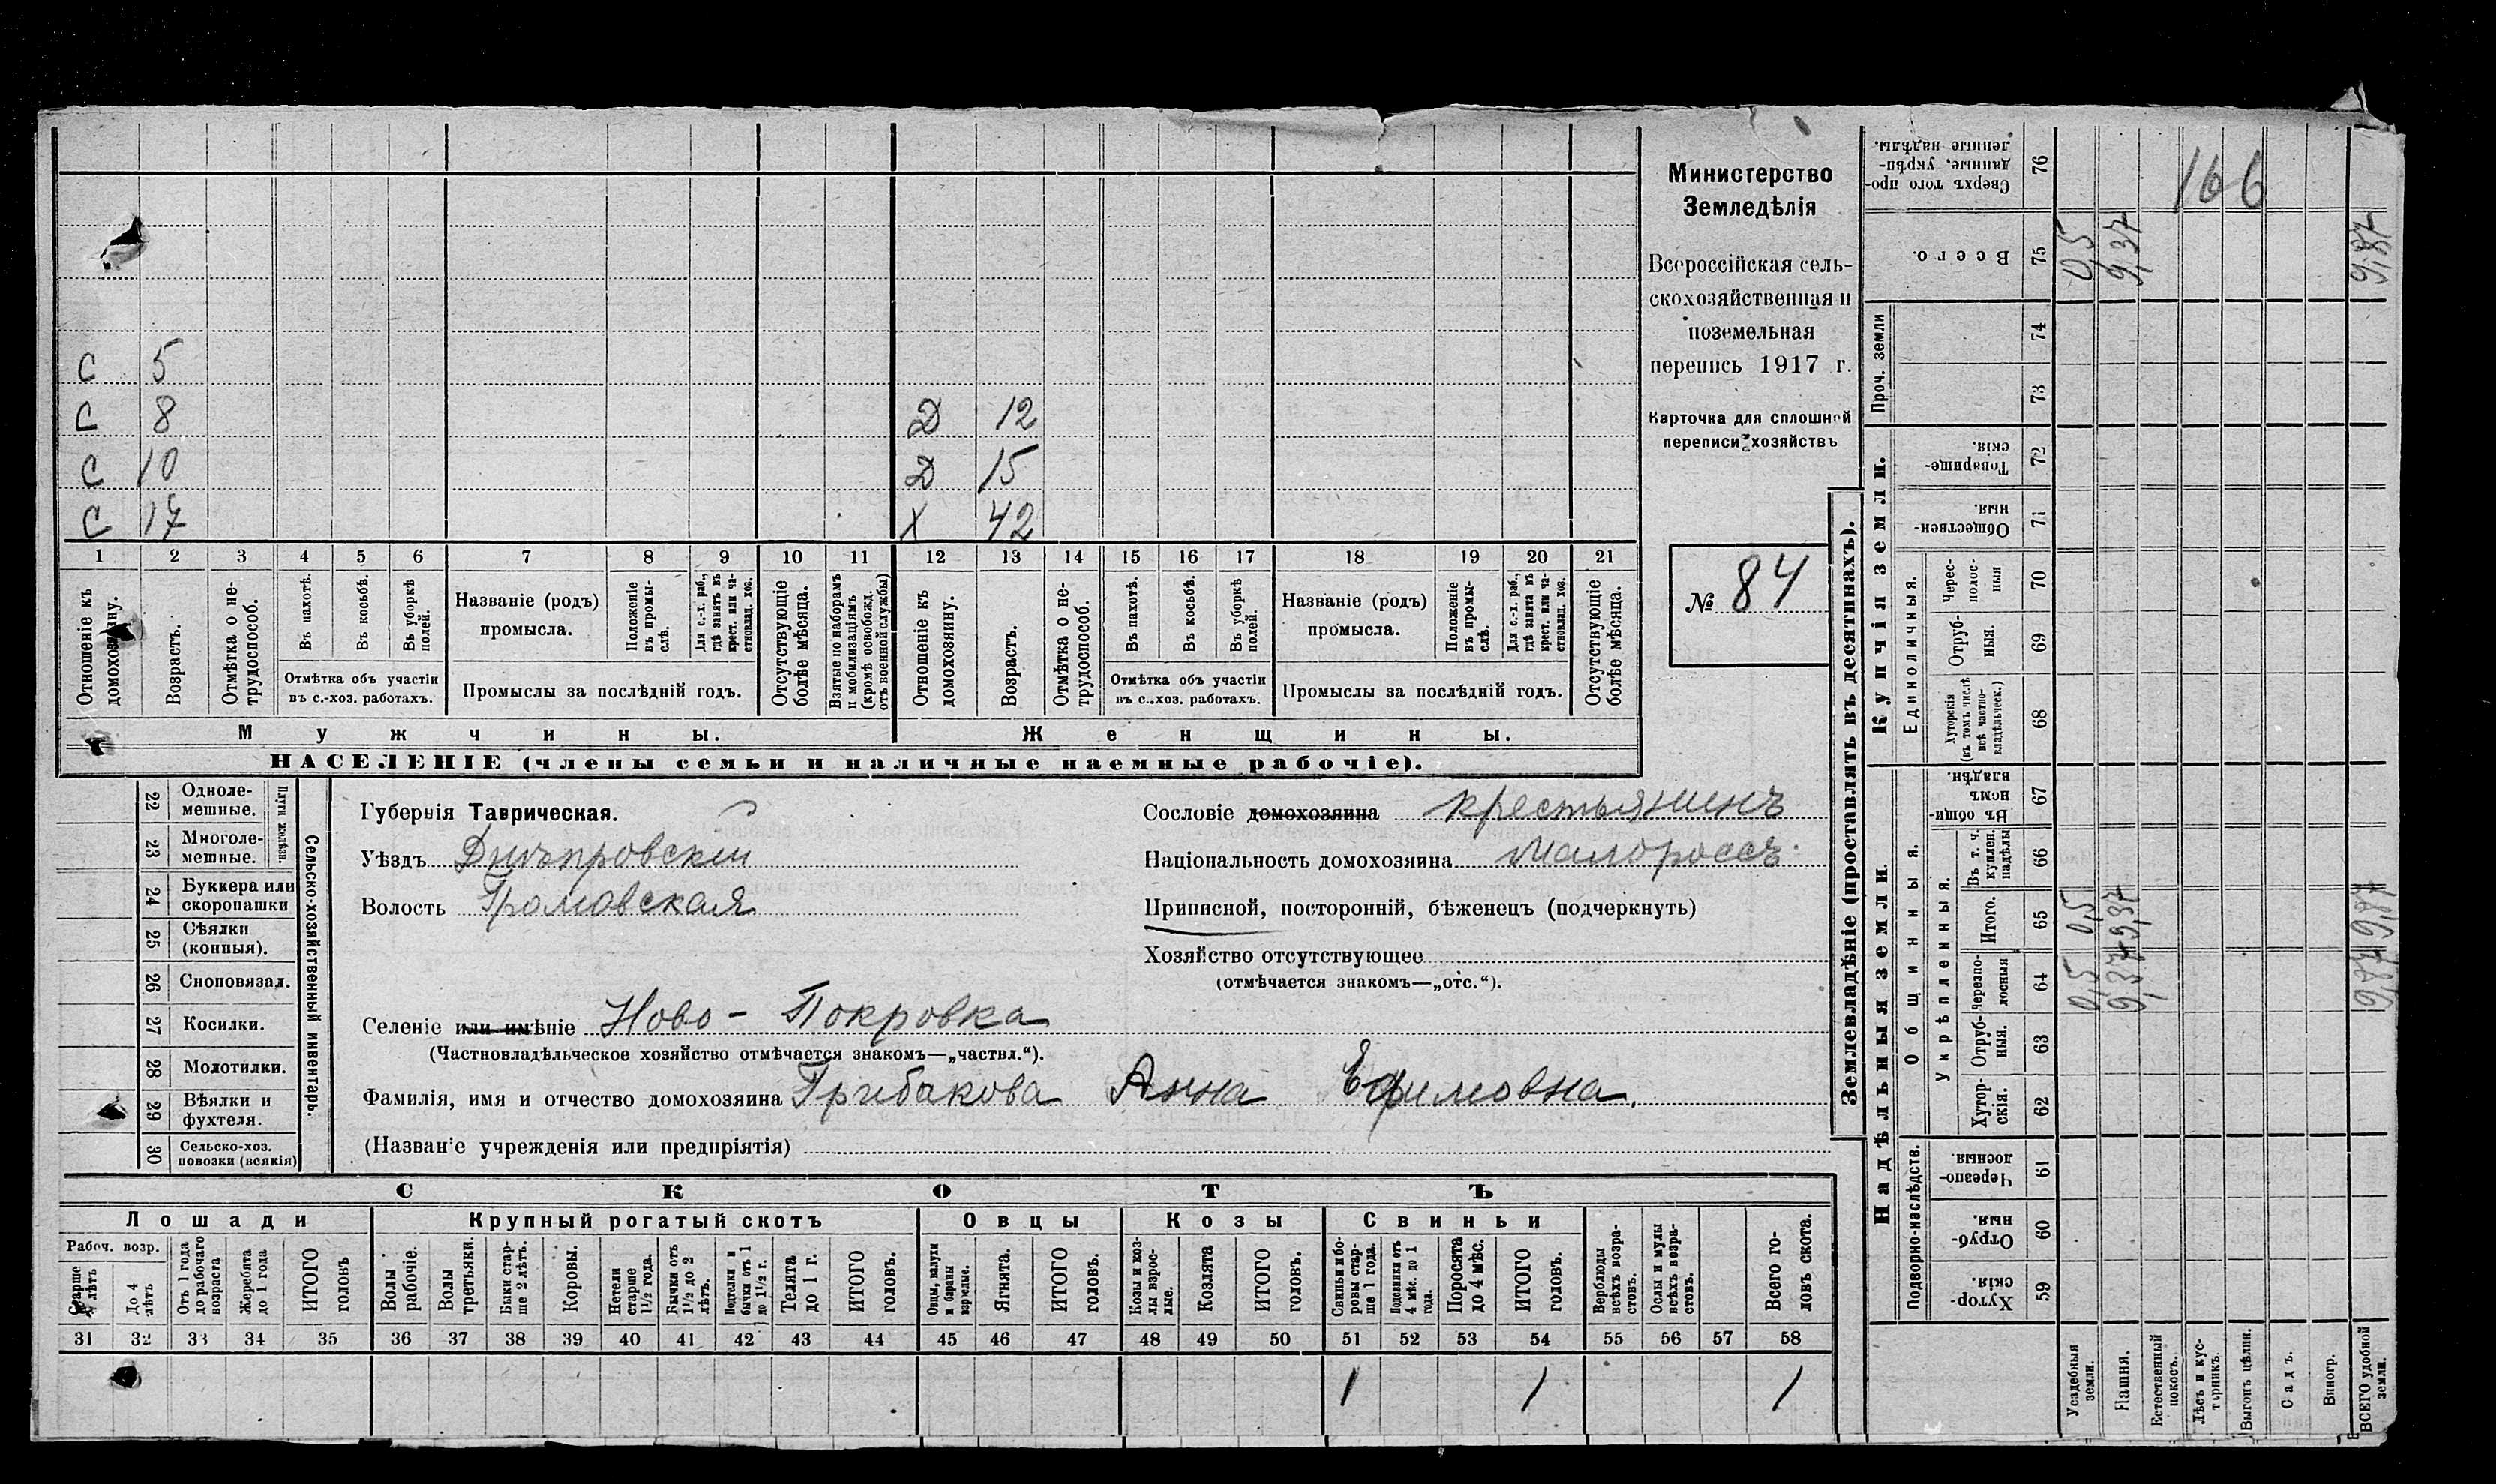 С 5
С 8 Д 12
С 10 Д 15
С 17 Х 42
1 2 3 4 5 6 7 8 9 10 11 12 13 14 15 16 17 18 19 20 21
Отношеніе къ домохозяину.
Возрастъ.
Отмѣтка о не-трудоспособ.
Въ пахотѣ.
Въ косьбѣ.
Въ уборкѣ полей.
Отмѣтка объ участіи
въ с.-хоз. работахъ.
Названіе (родъ)
промысла.
Положеніе въ промы-слѣ.
Для с.-х. раб., гдѣ занятъ въ крест. или ча-стновлад. хоз.
Промыслы за послѣдній годъ.
Отсутствующіе болѣе мѣсяца.
Взятые по наборамъ и мобилизаціямъ (кромѣ освобожд. отъ военной службы)
Отношеніе къ домохозяину.
Возрастъ.
Отмѣтка о не-трудоспособ.
Въ пахотѣ.
Въ косьбѣ.
Въ уборкѣ полей.
Отмѣтка объ участіи
въ с.-хоз. работахъ.
Названіе (родъ)
промысла.
Положеніе въ промы-слѣ.
Для с.-х. раб., гдѣ занята въ крест. или ча-стновлад. хоз.
Промыслы за послѣдній годъ.
Отсутствующіе болѣе мѣсяца.
Мужчины. Женщины.
НАСЕЛЕНІЕ (члены семьи и наличные наемные рабочіе).
Министерство
Земледѣлія
Всероссійская сель-
скохозяйственная и
поземельная
перепись 1917 г.
Карточка для сплошной
переписи хозяйствъ
№ 84
Сельско-хозяйственный инвентарь.
Плуги желѣзн.
22 Однолемешные.
23 Многолемешные.
24 Буккера или скоропашки
25 Сѣялки (конныя).
26 Сноповязал.
27 Косилки.
28 Молотилки.
29 Вѣялки и фухтеля.
30 Сельско-хоз. повозки (всякія)
Губернія Таврическая.
Уѣздъ Днѣпровскій
Волость Громовская
Селеніе или имѣніе Ново-Покровка
(Частновладѣльческое хозяйство отмѣчается знакомъ—„частвл.“).
Фамилія, имя и отчество домохозяина Грибакова Анна Ефимовна.
(Названіе учрежденія или предпріятія)
Сословіе домохозяина крестьянинъ
Національность домохозяина малороссъ.
Приписной, посторонній, бѣженецъ (подчеркнуть)
Хозяйство отсутствующее
(отмѣчается знакомъ—„отс.“).
СКОТЪ
Лошади Крупный рогатый скотъ Овцы Козы Свиньи
Рабоч. возр.
Старше лѣтъ
До 4 лѣтъ
Отъ 1 года до рабочаго возраста
Жеребята до 1 года
ИТОГО головъ
Волы рабочіе.
Волы третьяки.
Быки стар-ше 2 лѣтъ.
Коровы.
Нетели старше 1 1/2 года.
Бычки отъ 1 1/2 до 2 лѣтъ.
Подтелки и бычки отъ 1 до 1 1/2 г.
Телята до 1 г.
ИТОГО головъ.
Овцы, валухи и бараны взрослые.
Ягнята.
ИТОГО головъ.
Козы и коз-лы взрос-лые.
Козлята
ИТОГО головъ.
Свиньи и бо-ровы стар-ше 1 года.
Подсвинки отъ 4 мѣс. до 1 года.
Поросята до 4 мѣс.
ИТОГО головъ.
Верблюды всѣхъ возра-стовъ.
Ослы и мулы всѣхъ возра-стовъ.
Всего го-ловъ скота.
31 32 33 34 35 36 37 38 39 40 41 42 43 44 45 46 47 48 49 50 51 52 53 54 55 56 57 58
1 1 1
Землевладѣніе (проставлять въ десятинахъ).
Надѣльныя земли. Купчія земли. Проч. земли
Подворно-наслѣдств.
Общинныя.
Укрѣпленныя.
Единоличныя.
Сверхъ того про-данные, укрѣп-ленные надѣлы. 76
Всего. 75 0,5 9,37 9,87
166
74
73
Товарище-скія. 72
Обществен-ныя. 71
Черес-полос-ныя 70
Отруб-ныя. 69
Хуторскія (въ томъ числѣ всѣ частно-владѣльческ.) 68
Въ общи-номъ владѣн. 67
Въ т. ч. куплен. надѣлы 66
Итого. 65 0,5 9,37 9,87
Черезпо-лосныя 64 0,5 9,37 9,87
Отруб-ныя. 63
Хутор-скія. 62
Черезпо-лосныя. 61
Отруб-ныя. 60
Хутор-скія. 59
Усадебныя земли.
Пашня.
Естественный покосъ.
Лѣсъ и кус-тарникъ.
Выгонъ цѣлин.
Садъ.
Виногр.
ВСЕГО удобной земли.